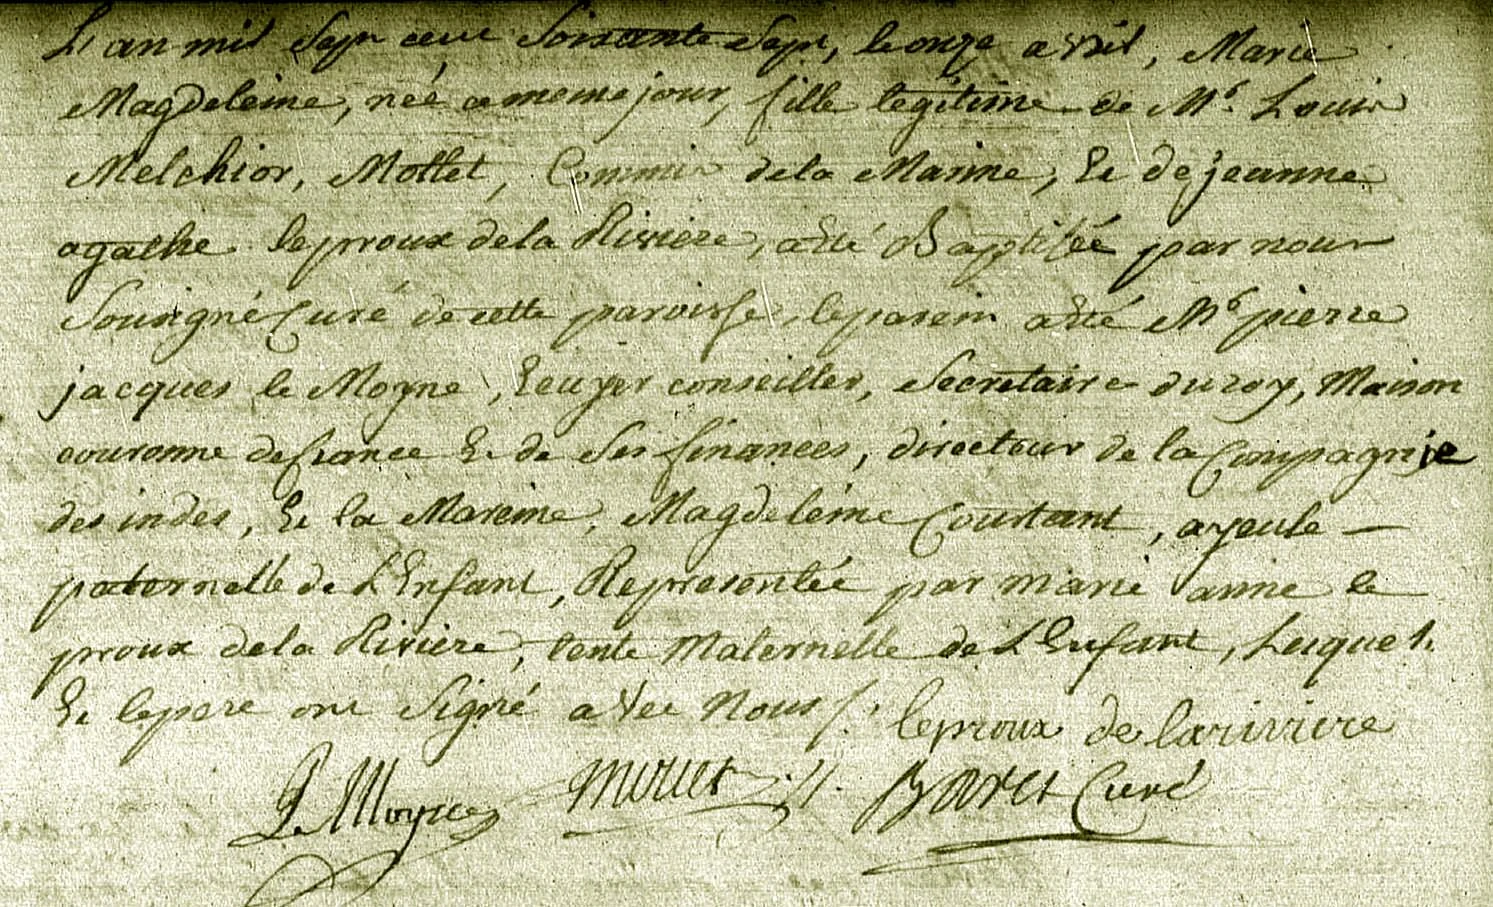 L'an mil Sept cent Soixante Sept, le onze avril, Marie
Magdeleine, née ce meme jour, fille legitime de Mr. Louis
Melchior, Mollet, Commis de la Marine, & de jeanne
agathe leproux de la Riviere, a été Baptisée par nous
Sousigné Curé de cette paroisse, le parein a été Mr pierre
jacques le Moyne, Ecuyer conseiller, Secretaire du roy, Maison
couronne de france & de Ses finances, directeur de la Compagnie
des indes, & la Mareine, Magdeleine Coustant, ayeule
paternelle de L'Enfant, Representée par marie anne le
proux de la Riviere, tente Maternelle de L'Enfant, Lesquels
& le pere ont Signé avec Nous /. leproux de lariviere
Le Moyne Mollet Baret Curé